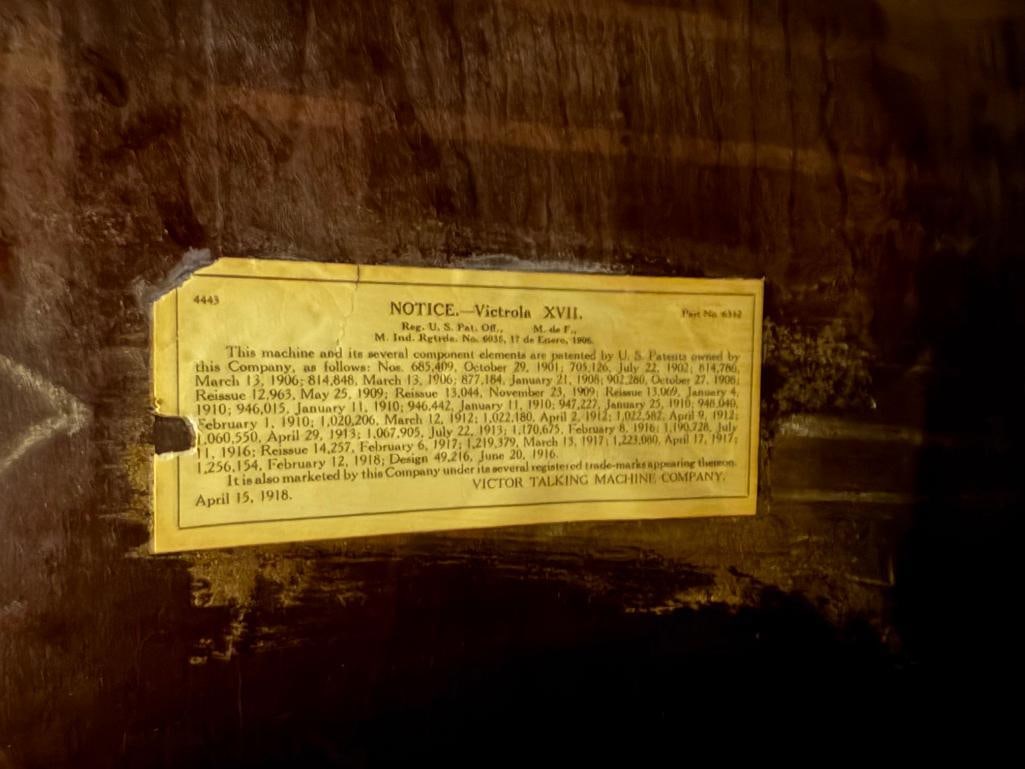 4443
NOTICE.—Victrola XVII.
Part No. 6312
Reg. U. S. Pat. Off., M. de F.,
M. Ind. Rgtrda. No. 6035, 17 de Enero, 1906.
This machine and its several component elements are patented by U. S. Patents owned by
this Company, as follows: Nos. 685,409, October 29, 1901; 705,126, July 22, 1902; 814,786,
March 13, 1906; 814,848, March 13, 1906; 877,184, January 21, 1908; 902,280, October 27, 1908;
Reissue 12,963, May 25, 1909; Reissue 13,044, November 23, 1909; Reissue 13,069, January 4,
1910; 946,015, January 11, 1910; 946,442, January 11, 1910; 947,227, January 25, 1910; 948,040,
February 1, 1910; 1,020,206, March 12, 1912; 1,022,180, April 2, 1912; 1,022,582, April 9, 1912;
1,060,550, April 29, 1913; 1,067,905, July 22, 1913; 1,170,675, February 8, 1916; 1,190,728, July
11, 1916; Reissue 14,257, February 6, 1917; 1,219,379, March 13, 1917; 1,223,080, April 17, 1917;
1,256,154, February 12, 1918; Design 49,216, June 20, 1916.
It is also marketed by this Company under its several registered trade-marks appearing thereon.
April 15, 1918. VICTOR TALKING MACHINE COMPANY.